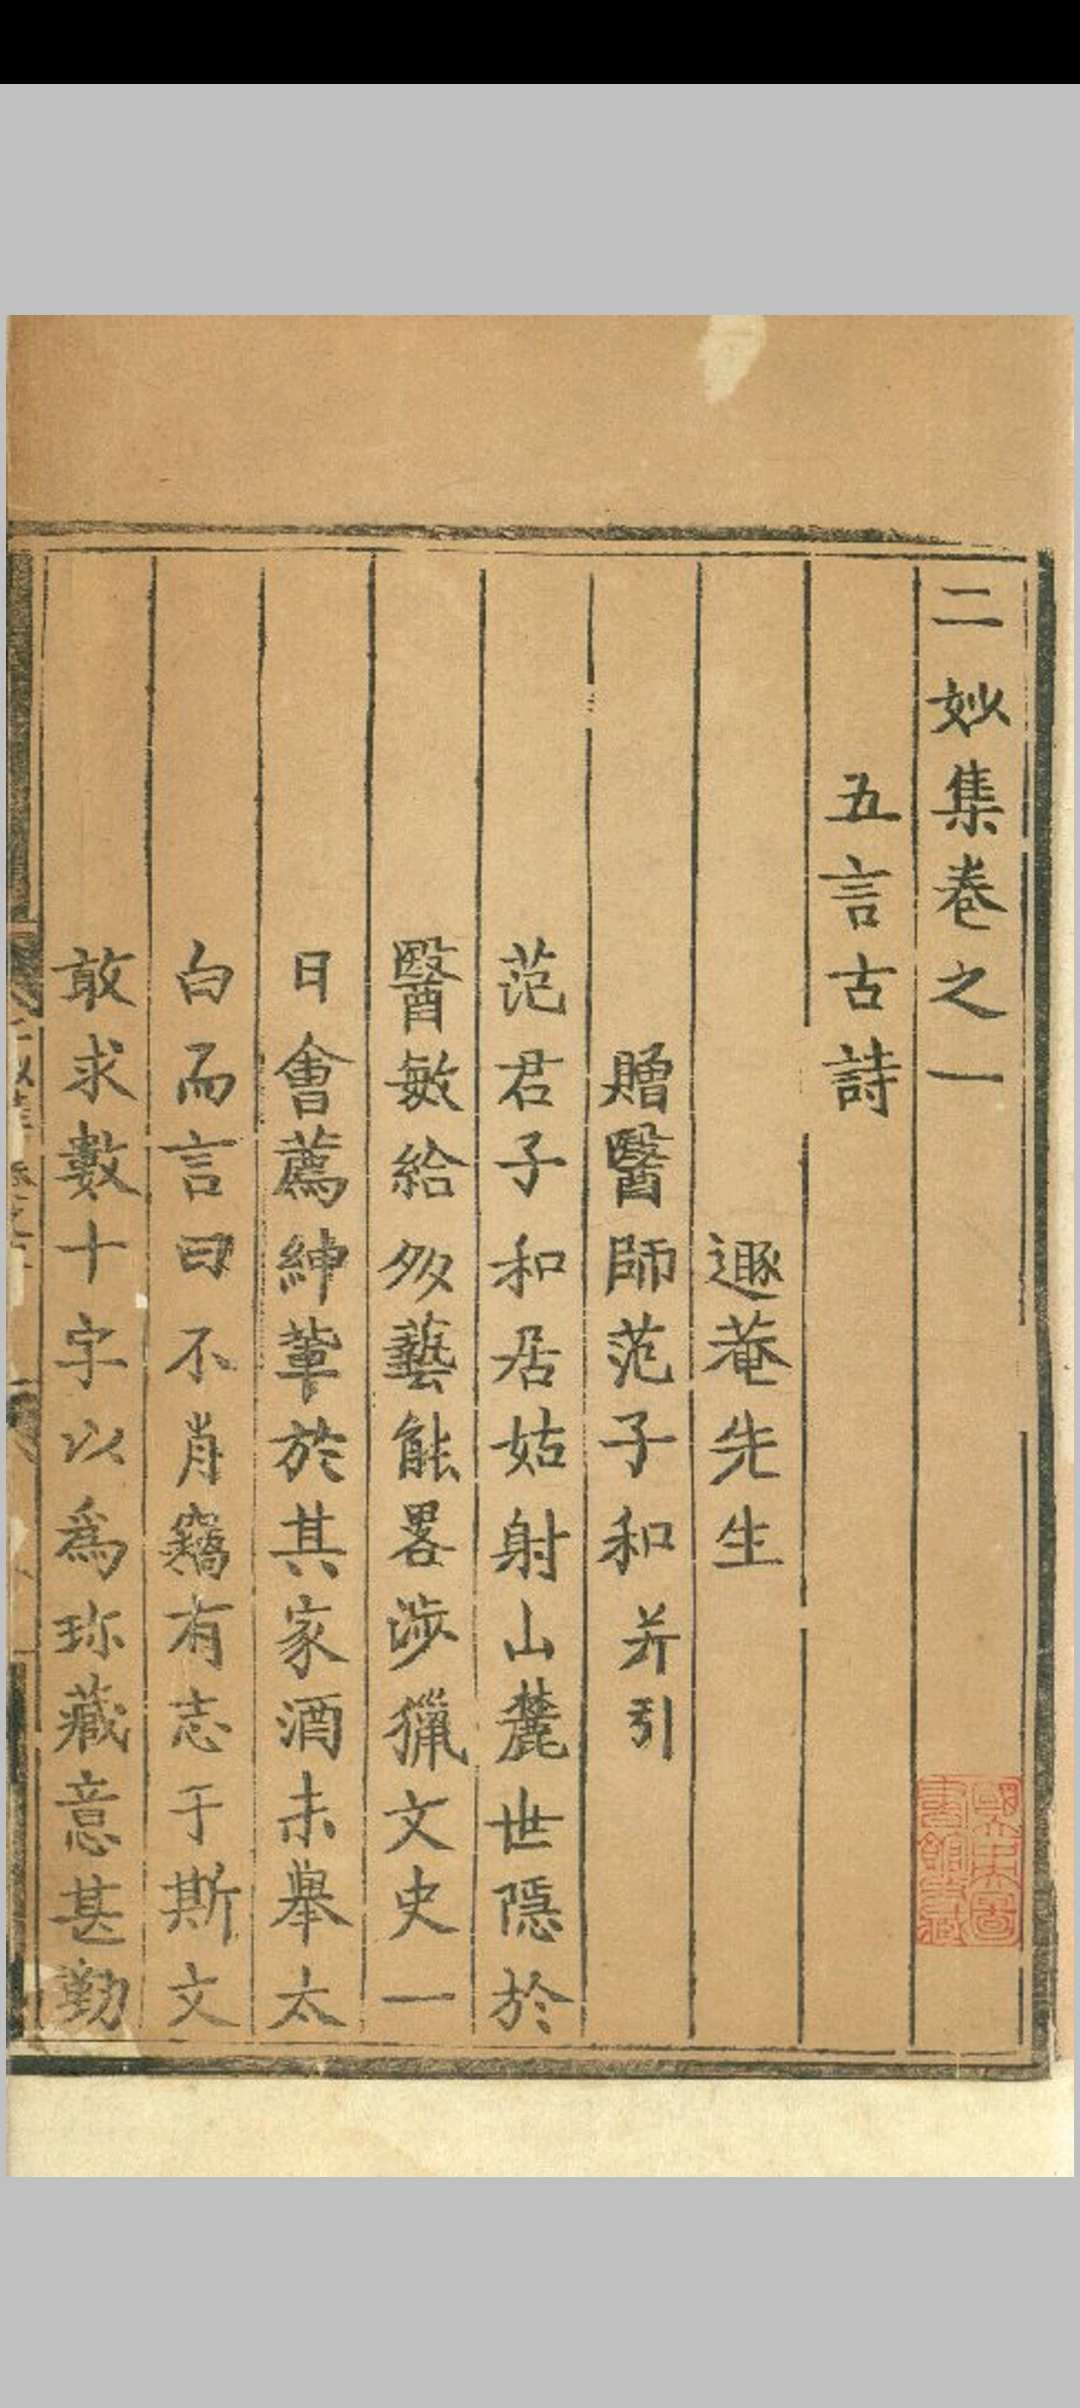 二妙集卷之一
五言古詩
遯菴先生
贈醫師范子和并引
范君子和居姑射山麓世隱於
醫敏給多藝能畧涉獵文史一
日會薦紳輩於其家酒未舉太
白而言曰不肖竊有志于斯文
敢求數十字以爲珎藏意甚勤